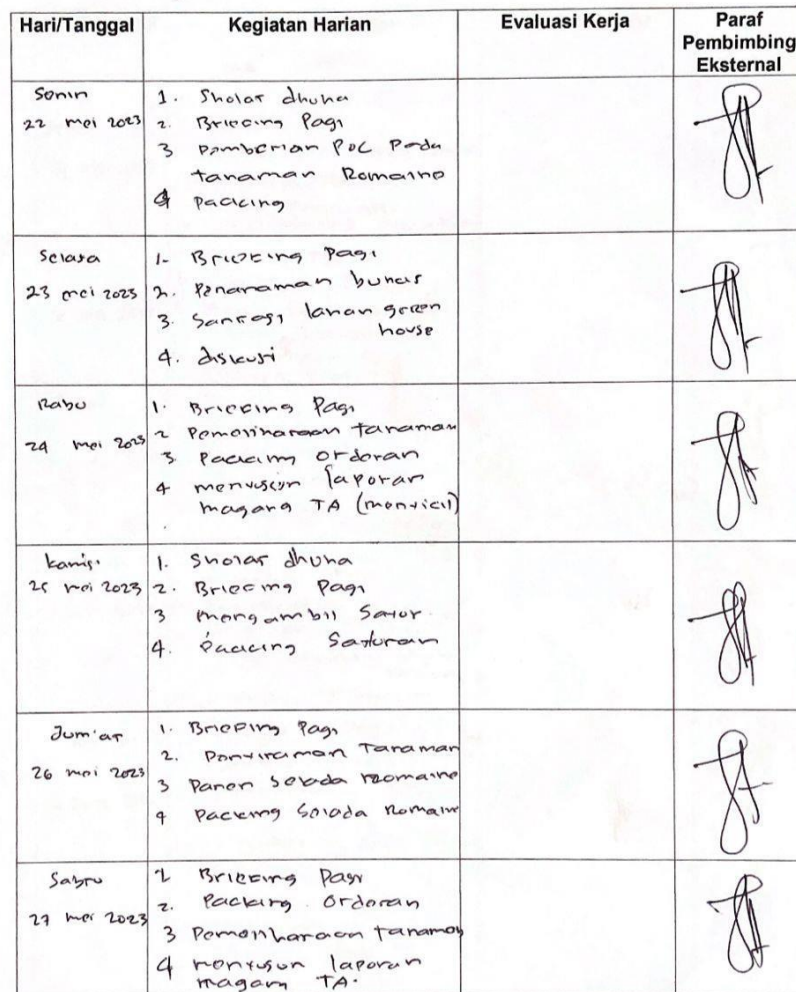 Hari/Tanggal Kegiatan Harian Evaluasi Kerja Paraf
Pembimbing
Eksternal
Senin
22 mei 2023
1. Sholat dhuha
2. Briefing Pagi
3 Pemberian POC Pada
tanaman Romaine
4 packing
Selasa
23 mei 2023
1. Briefing Pagi
2. Penanaman buncis
3. Sanitasi lahan green
house
4. diskusi
Rabu
24 mei 2023
1. Briefing Pagi
2 Pemeliharaan tanaman
3. Packing orderan
4 menyusun laporan
magang TA (menyicil)
Kamis
25 mei 2023
1. Sholat dhuha
2. Briefing Pagi
3 mengambil Sayur
4. Packing Sayuran
Jum'at
26 mei 2023
1. Briefing Pagi
2. Penyiraman Tanaman
3 Panen Selada Romaine
4 Packing Selada Romaine
Sabtu
27 mei 2023
1 Briefing Pagi
2. Packing orderan
3 Pemeliharaan tanaman
4 menyusun laporan
magang TA.